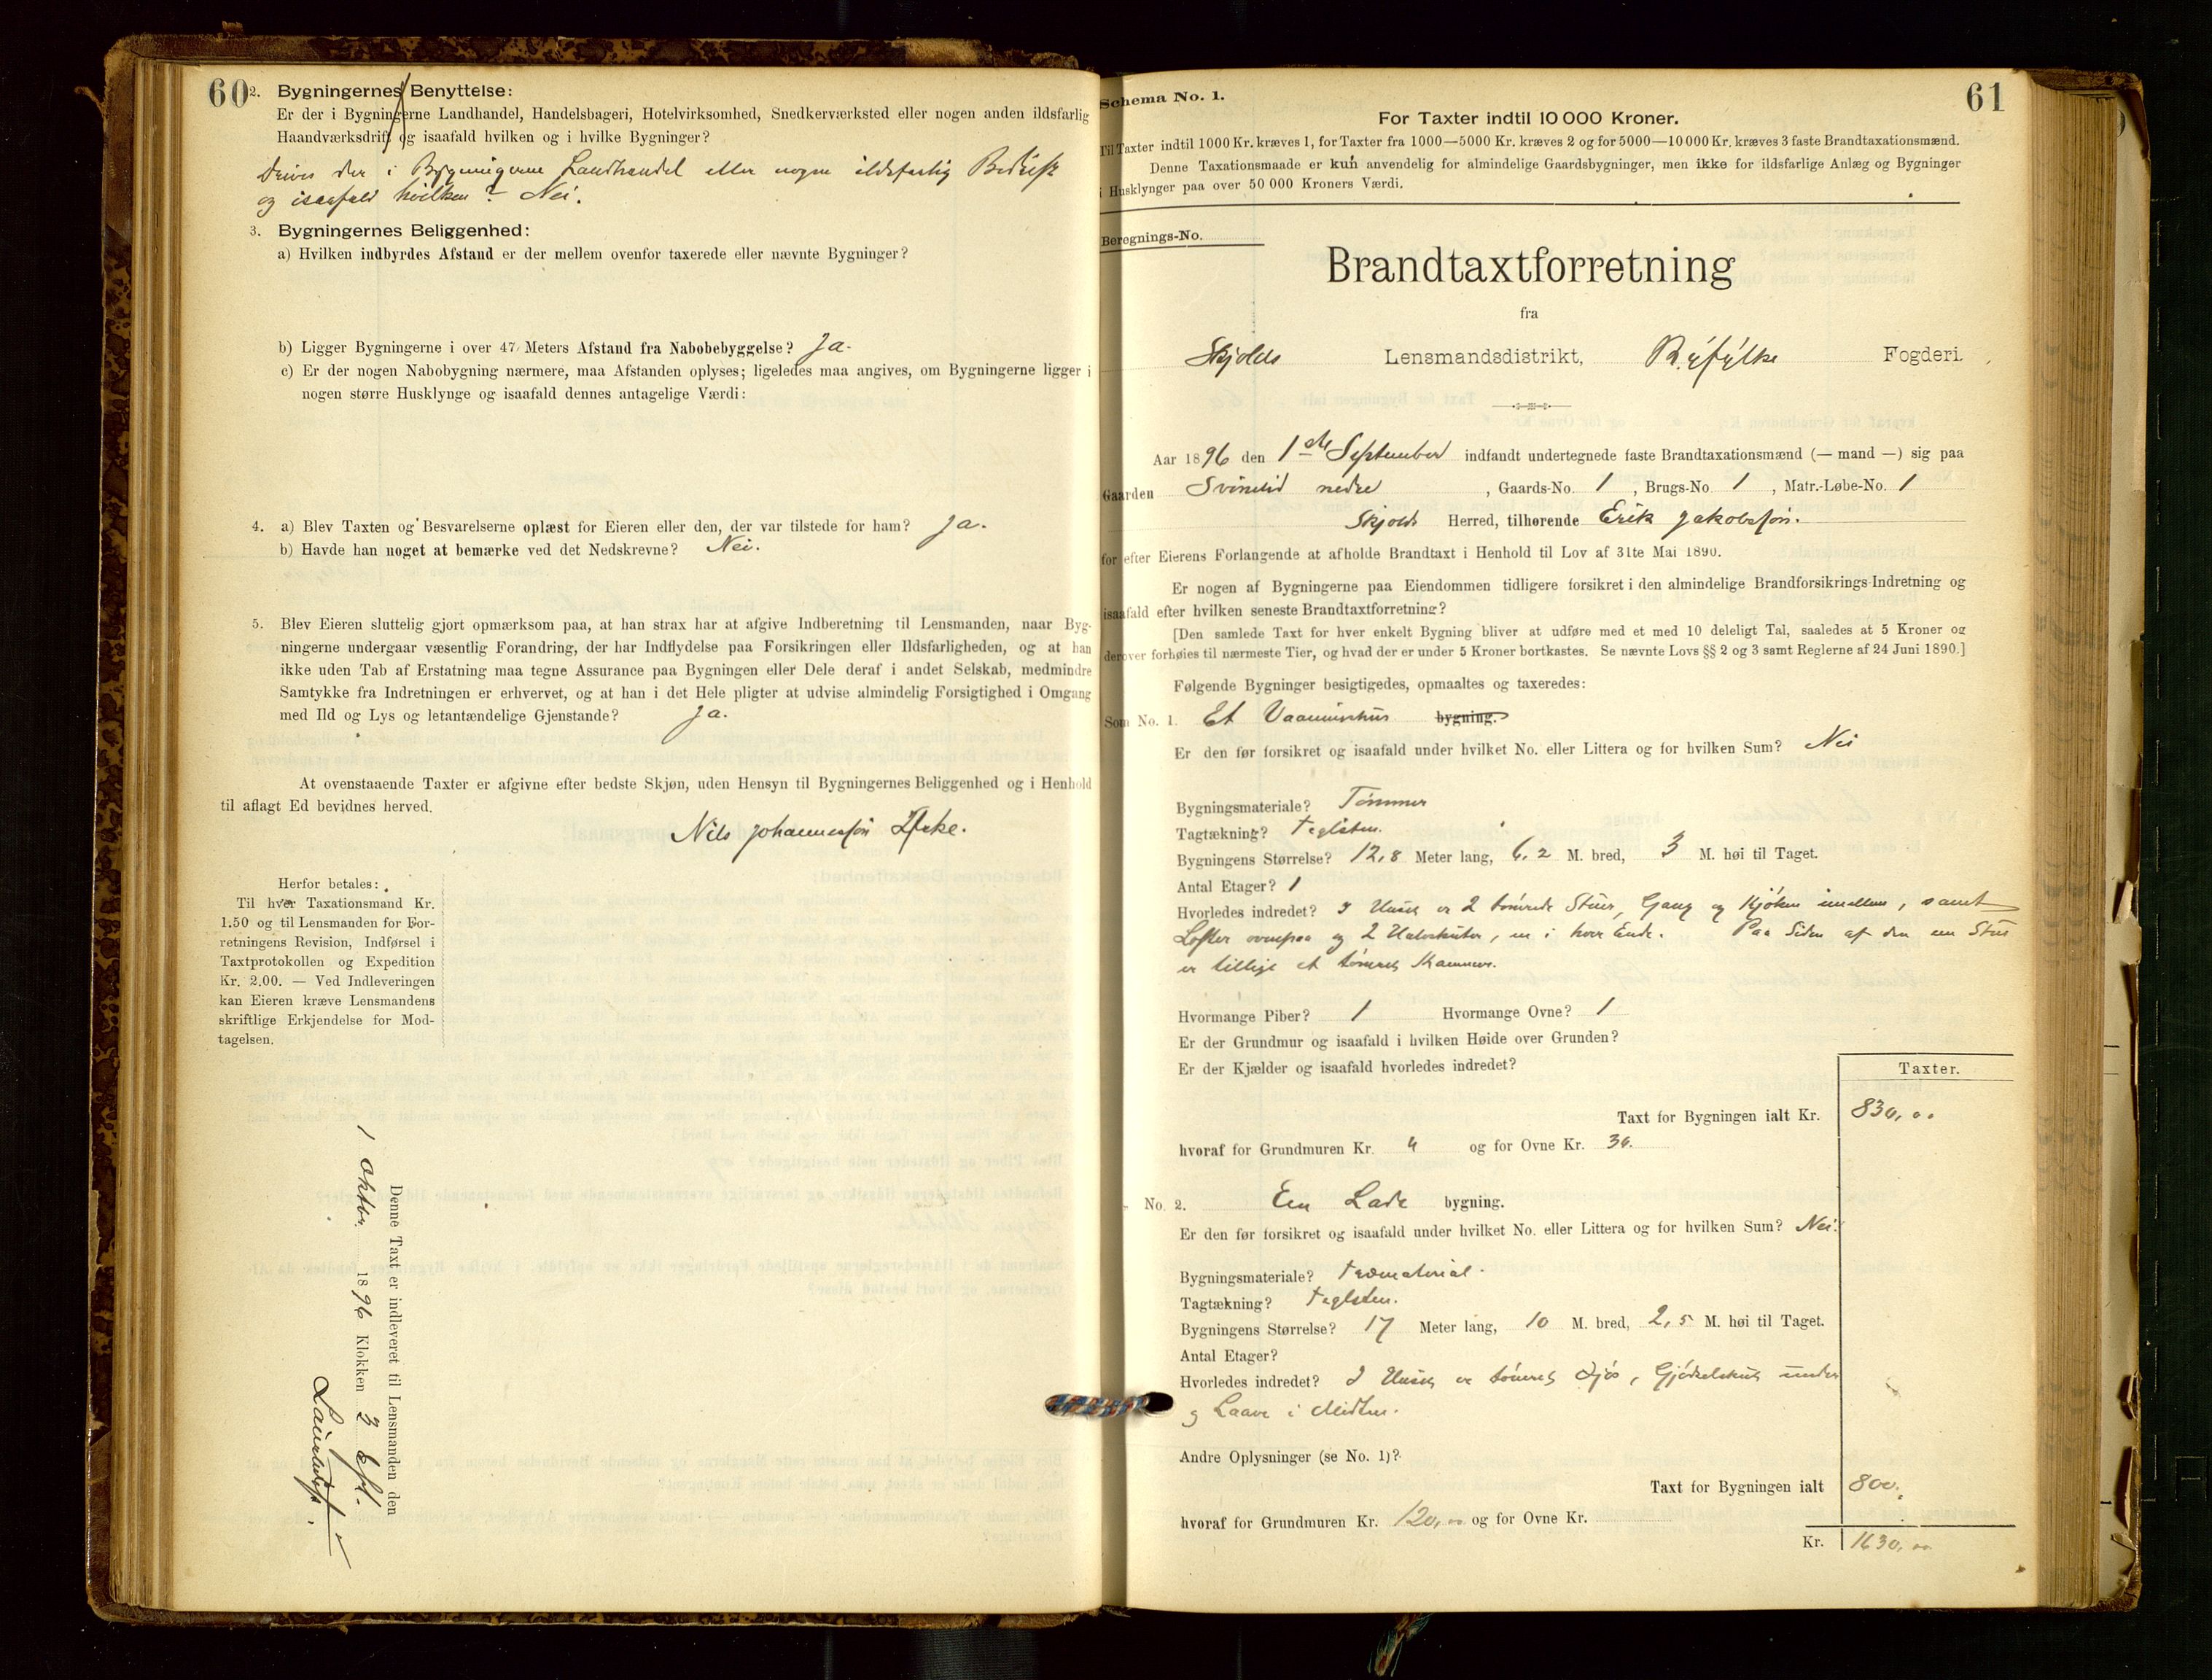 60
2. Bygningernes Benyttelse:
Er der i Bygningerne Landhandel, Handelsbageri, Hotelvirksomhed, Snedkerværksted eller nogen anden ildsfarlig
Haandværksdrift og isaafald hvilken og i hvilke Bygninger?
Drives der i Bygningerne Landhandel eller nogen ildsfarlig Bedrift
og isaafald hvilken? Nei.
3. Bygningernes Beliggenhed:
a) Hvilken indbyrdes Afstand er der mellem ovenfor taxerede eller nævnte Bygninger?
b) Ligger Bygningerne i over 47 Meters Afstand fra Nabobebyggelse? Ja.
c) Er der nogen Nabobygning nærmere, maa Afstanden oplyses; ligeledes maa angives, om Bygningerne ligger i
nogen større Husklynge og isaafald dennes antagelige Værdi:
4. a) Blev Taxten og Besvarelserne oplæst for Eieren eller den, der var tilstede for ham? Ja.
b) Havde han noget at bemærke ved det Nedskrevne? Nei.
5. Blev Eieren sluttelig gjort opmærksom paa, at han strax har at afgive Indberetning til Lensmanden, naar Byg-
ningerne undergaar væsentlig Forandring, der har Indflydelse paa Forsikringen eller Ildsfarligheden, og at han
ikke uden Tab af Erstatning maa tegne Assurance paa Bygningen eller Dele deraf i andet Selskab, medmindre
Samtykke fra Indretningen er erhvervet, og at han i det Hele pligter at udvise almindelig Forsigtighed i Omgang
med Ild og Lys og letantændelige Gjenstande? Ja.
At ovenstaaende Taxter er afgivne efter bedste Skjøn, uden Hensyn til Bygningernes Beliggenhed og i Henhold
til aflagt Ed bevidnes herved.
Nils Johannessøn
Herfor betales:
Til hver Taxationsmand Kr.
1.50 og til Lensmanden for For-
retningens Revision, Indførsel i
Taxtprotokollen og Expedition
Kr. 2.00. — Ved Indleveringen
kan Eieren kræve Lensmandens
skriftlige Erkjendelse for Mod-
tagelsen.
Denne Taxt er indleveret til Lensmanden den
1 Oktbr. 1896 Klokken 3 Eft.
61
Schema No. 1.
For Taxter indtil 10 000 Kroner.
Til Taxter indtil 1000 Kr. kræves 1, for Taxter fra 1000—5000 Kr. kræves 2 og for 5000—10 000 Kr. kræves 3 faste Brandtaxationsmænd.
Denne Taxationsmaade er kun anvendelig for almindelige Gaardsbygninger, men ikke for ildsfarlige Anlæg og Bygninger
i Husklynger paa over 50 000 Kroners Værdi.
Beregnings-No.
Brandtaxtforretning
fra
Skjolds Lensmandsdistrikt, Ryfylke Fogderi.
Aar 1896 den 1ste September indfandt undertegnede faste Brandtaxationsmænd (— mand —) sig paa
Gaarden Svinelid nedre, Gaards-No. 1, Brugs-No. 1, Matr.-Løbe-No. 1
Skjolds Herred, tilhørende Erik Jakobsøn.
for efter Eierens Forlangende at afholde Brandtaxt i Henhold til Lov af 31te Mai 1890.
Er nogen af Bygningerne paa Eiendommen tidligere forsikret i den almindelige Brandforsikrings-Indretning og
isaafald efter hvilken seneste Brandtaxtforretning?
[Den samlede Taxt for hver enkelt Bygning bliver at udføre med et med 10 deleligt Tal, saaledes at 5 Kroner og
derover forhøies til nærmeste Tier, og hvad der er under 5 Kroner bortkastes. Se nævnte Lovs §§ 2 og 3 samt Reglerne af 24 Juni 1890.]
Følgende Bygninger besigtigedes, opmaaltes og taxeredes:
Som No. 1. Et Vaaningshus bygning.
Er den før forsikret og isaafald under hvilket No. eller Littera og for hvilken Sum? Nei
Bygningsmateriale? Tømmer
Tagtækning? Teglsten.
Bygningens Størrelse? 12,8 Meter lang, 6,2 M. bred, 3 M. høi til Taget.
Antal Etager? 1
Hvorledes indredet? I Huset er 2 tømrede Stuer, Gang og Kjøken imellem, samt
Lofter ovenpaa og 2 Udeskuter, en i hver Ende. Paa Siden af den ene Stue
er tillige et tømret Kammer.
Hvormange Piber? 1 Hvormange Ovne? 1
Er der Grundmur og isaafald i hvilken Høide over Grunden?
Er der Kjælder og isaafald hvorledes indredet?
Taxter.
Taxt for Bygningen ialt Kr. 830,00
hvoraf for Grundmuren Kr. 4 og for Ovne Kr. 30.
No. 2. En Lade bygning.
Er den før forsikret og isaafald under hvilket No. eller Littera og for hvilken Sum? Nei.
Bygningsmateriale? Træmaterial.
Tagtækning? Teglsten.
Bygningens Størrelse? 17 Meter lang, 10 M. bred, 2,5 M. høi til Taget.
Antal Etager?
Hvorledes indredet? I Huset er tømret Fjøs, Gjødselskut under
og Laave i Midten.
Andre Oplysninger (se No. 1)?
Taxt for Bygningen ialt 800.
hvoraf for Grundmuren Kr. 120,00 og for Ovne Kr.
Kr. 1630,00